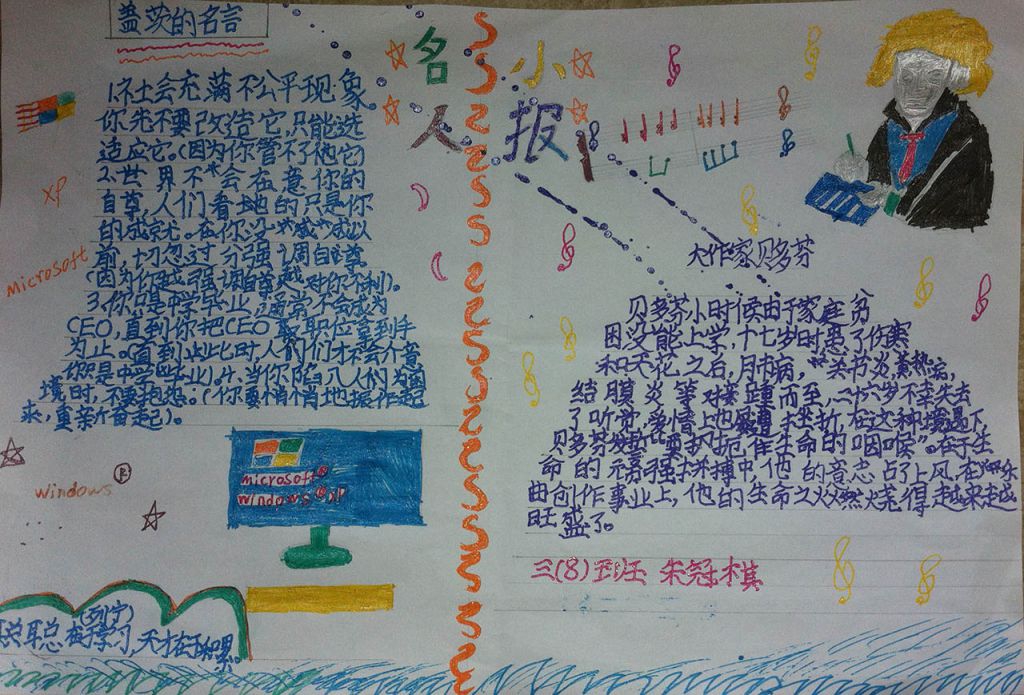 盖茨的名言
名人小报
1.社会充满不公平现象。
你先不要改造它,只能选
适应它。(因为你管不了他它)
2.世界不会在意你的
自尊,人们看地的只是你
的成就。在你没成就以
前,切忽过分强调自尊
(因为你越强调自尊越对你不利)。
3.你只是中学毕业,通常不会成为
CEO,直到你把CEO职位拿到手
为止。(直到此时,人们们才不会介意
你只是中学毕业)。4.当你陷入人们为困
境时,不要抱怨。(你要悄悄地操作起
来,重新奋起)。
XP
Microsoft
microsoft®
windows®xp
®
windows
(列宁)
聪 在于学习,天才在于积累。
大作家贝多芬
贝多芬小时候由于家庭贫
困没能上学,十七岁时患了伤寒
和天花之后,肺病,关节炎,黄
结膜炎等接踵而至,二十六岁不幸失去
了听觉,爱情上也屡遭挫折,在这种境遇下,
贝多芬发誓“要扼住生命的咽喉”。在于生
命的顽强拼搏中,他的意志占了上风,在乐
曲创作事业上,他的生命之火燃烧得越来越
旺盛了。
三(8)班 朱冠棋